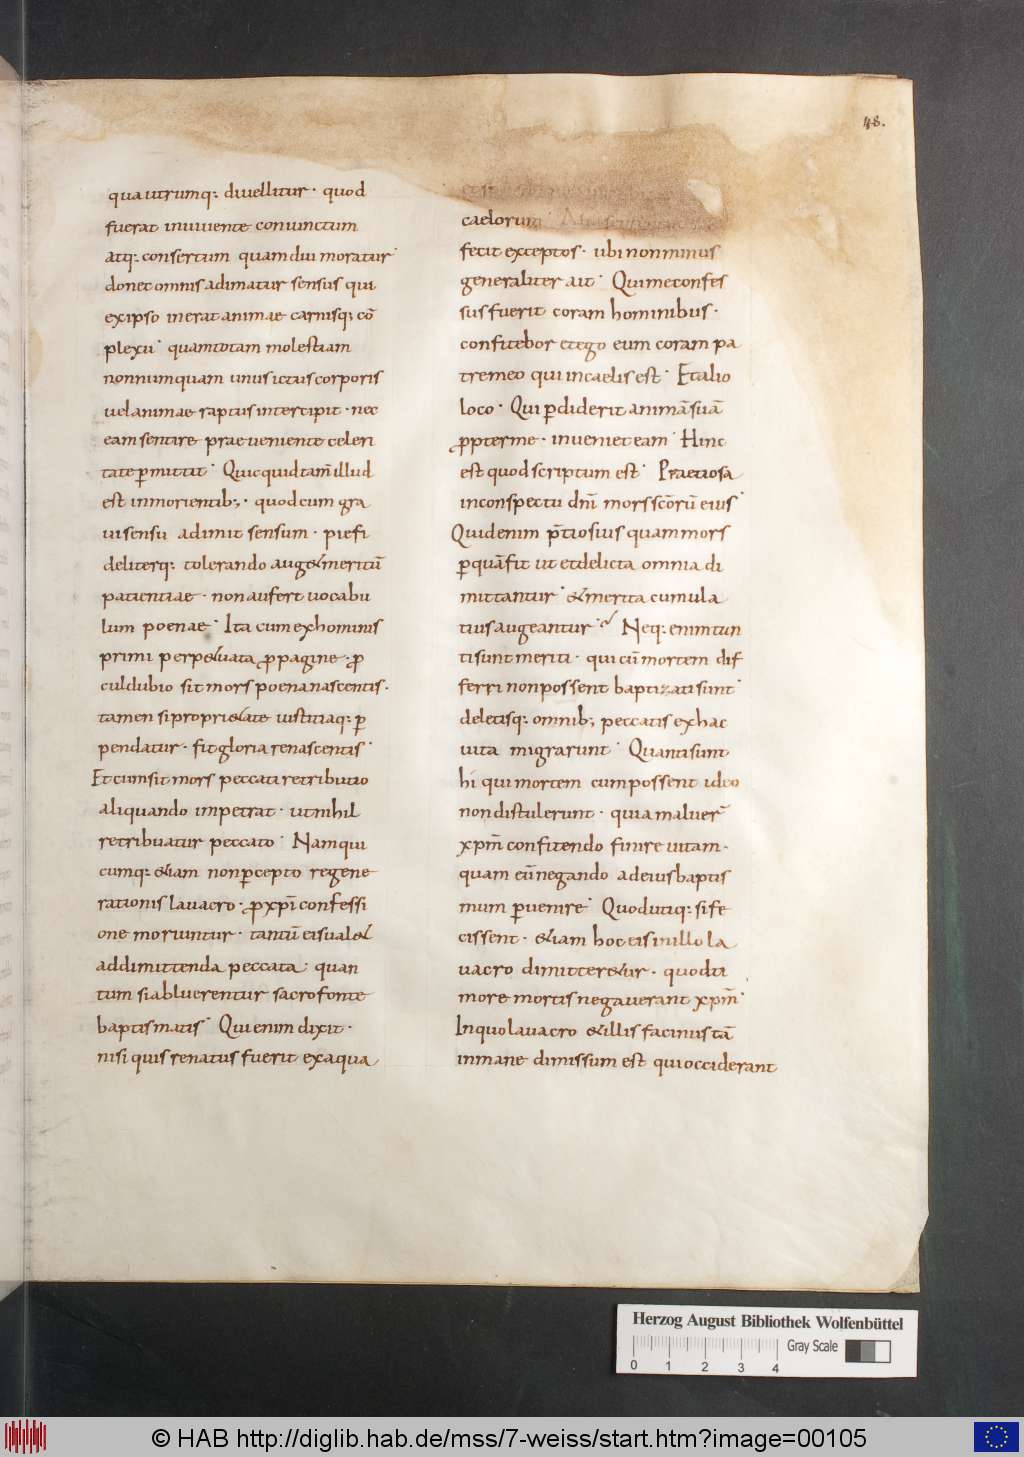 48.
qua utrumq; diuellitur· quod
fuerat inuiuente coniunctum
atq; consertum quamdiu moratur·
donec omnis adimatur sensus qui
ex ipso inerat animae carnisq; cō
plexu· quam totam molestiam
nonnumquam unus ictus corporis
uel animae raptus intercipit· nec
eam sentire praeueniente celeri
tate ꝑmittit· Quicquid tam̄ illud
est in morientib;· quod cum gra
ui sensu adimit sensum· pie fi
deliterq; tolerando auget meritū
patientiae· non aufert uocabu
lum poenae· Ita cum ex hominis
primi perpetuata ꝓpagine· ꝓ
cul dubio sit mors poena nascentis·
tamen si pro pietate iustitiaq; ꝑ
pendatur· fit gloria renascentis·
Et cum sit mors peccati retributio
aliquando impetrat· ut nihil
retribuatur peccato· Nam qui
cumq; etiam non ꝑcepto regene
rationis lauacro· ꝓ xp̄i confessi
one moriuntur· tantū eis ualet
ad dimittenda peccata· quan
tum si abluerentur sacro fonte
baptismatis· Qui enim dixit·
nisi quis renatus fuerit ex aqua
caelorum
fecit exceptos· ubi non minus
generaliter ait· Qui me confes
sus fuerit coram hominibus·
confitebor et ego eum coram pa
tre meo qui in caelis est· Et alio
loco· Qui ꝑdiderit animā suā
ꝓpter me· inueniet eam· Hinc
est quod scriptum est· Praetiosa
in conspectu dn̄i mors sc̄orū eius·
Quid enim p̄tiosius quam mors
ꝑ quā fit ut et delicta omnia di
mittantur· et merita cumula
tius augeantur· Neq; enim tan
ti sunt meriti· qui cū mortem dif
ferri non possent baptizati sunt·
deletisq; omnib; peccatis ex hac
uita migrarunt· Quanti sunt
hi qui mortem cum possent ideo
non distulerunt· quia maluer̄
xp̄m confitendo finire uitam·
quam eū negando ad eius baptis
mum ꝑuenire· Quod utiq; si fe
cissent· etiam hoc eis in illo la
uacro dimitteretur· quod ti
more mortis negauerant xp̄m·
In quo lauacro et illis facinus tā
inmane dimissum est qui occiderant
Herzog August Bibliothek Wolfenbüttel
Gray Scale
0 1 2 3 4
© HAB http://diglib.hab.de/mss/7-weiss/start.htm?image=00105